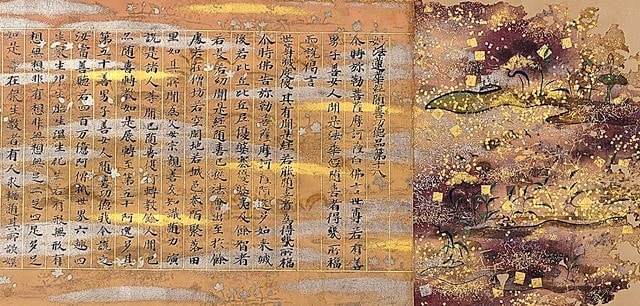 妙法蓮華經隨喜功德品第十八
尒時彌勒菩薩摩訶薩白佛言世尊若有善
男子善女人聞是法華經隨喜者得幾所福
而說偈言
世尊滅度後其有聞是經若能隨喜者為得幾所福
尒時佛告彌勒菩薩摩訶薩阿逸多如來滅
後若比丘比丘尼優婆塞優婆夷及餘智者
若長若幼聞是經隨喜已從法會出至於餘
處若在僧坊若空閑地若城邑巷陌聚落田
里如其所聞為父母宗親善友知識隨力演
說是諸人等聞已隨喜復行轉教餘人聞已
亦隨喜轉教如是展轉至第五十阿逸多其
第五十善男子善女人隨喜功德我今說之
汝當善聽若四百万億阿僧祇世界六趣四
生衆生卵生胎生濕生化生若有形無形有
想無想非有想非無想無足二足四足多足
如是等在衆生數者有人求福隨其所欲娛